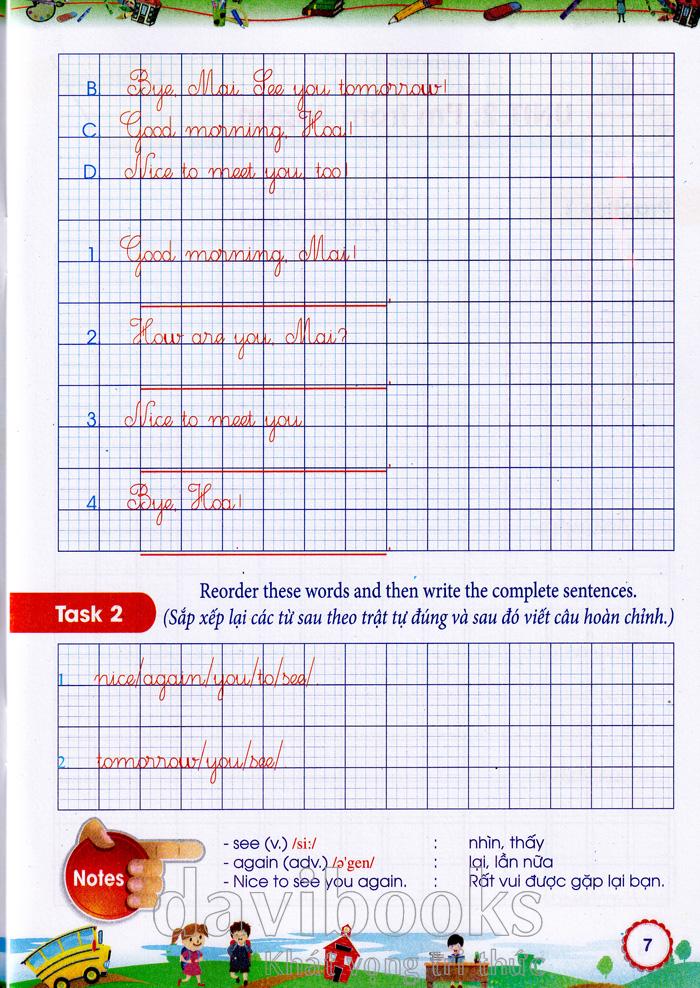 B. Bye, Mai. See you tomorrow!
C. Good morning, Hoa!
D. Nice to meet you, too!
1. Good morning, Mai!
2. How are you, Mai?
3. Nice to meet you.
4. Bye, Hoa!
Reorder these words and then write the complete sentences.
Task 2
(Sắp xếp lại các từ sau theo trật tự đúng và sau đó viết câu hoàn chỉnh.)
1. nice/again/you/to/see/
2. tomorrow/you/see/
Notes
- see (v.) /si:/ : nhìn, thấy
- again (adv.) /ə'gen/ : lại, lần nữa
- Nice to see you again. : Rất vui được gặp lại bạn.
davibooks
Khát vọng tri thức
7